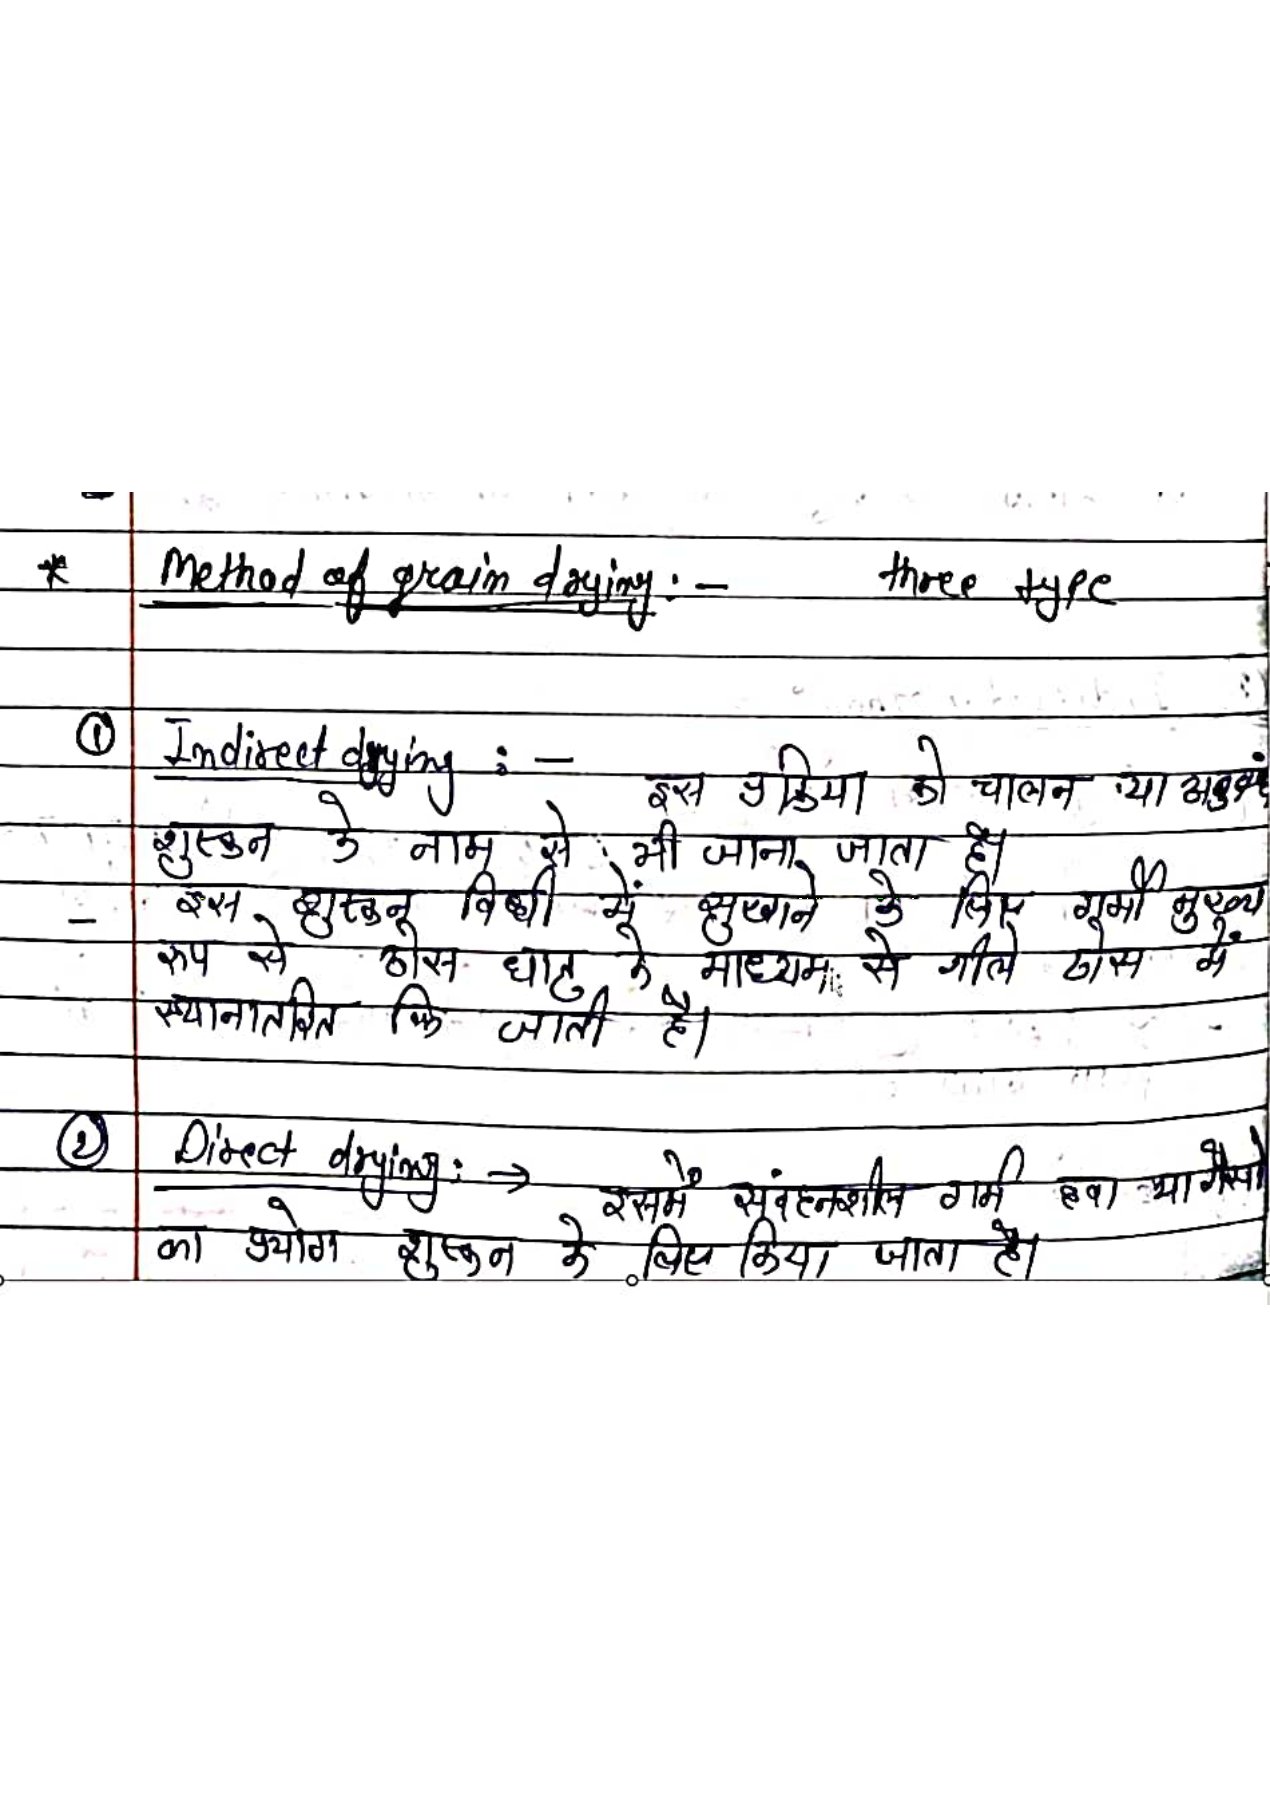 * Method of grain drying :- three type
① Indirect drying :- इस प्रक्रिया को चालन या
शुस्कन के नाम से भी जाना जाता है।
- इस शुस्कन विधी में सुखाने के लिए गर्मी मुख्य
रूप से ठोस धातु के माध्यम से गीले ठोस में
स्थानातरित कि जाती है।
② Direct drying: → इसमें संवहनशील गर्म हवा या गैसो
का प्रयोग शुस्कन के लिए किया जाता है।